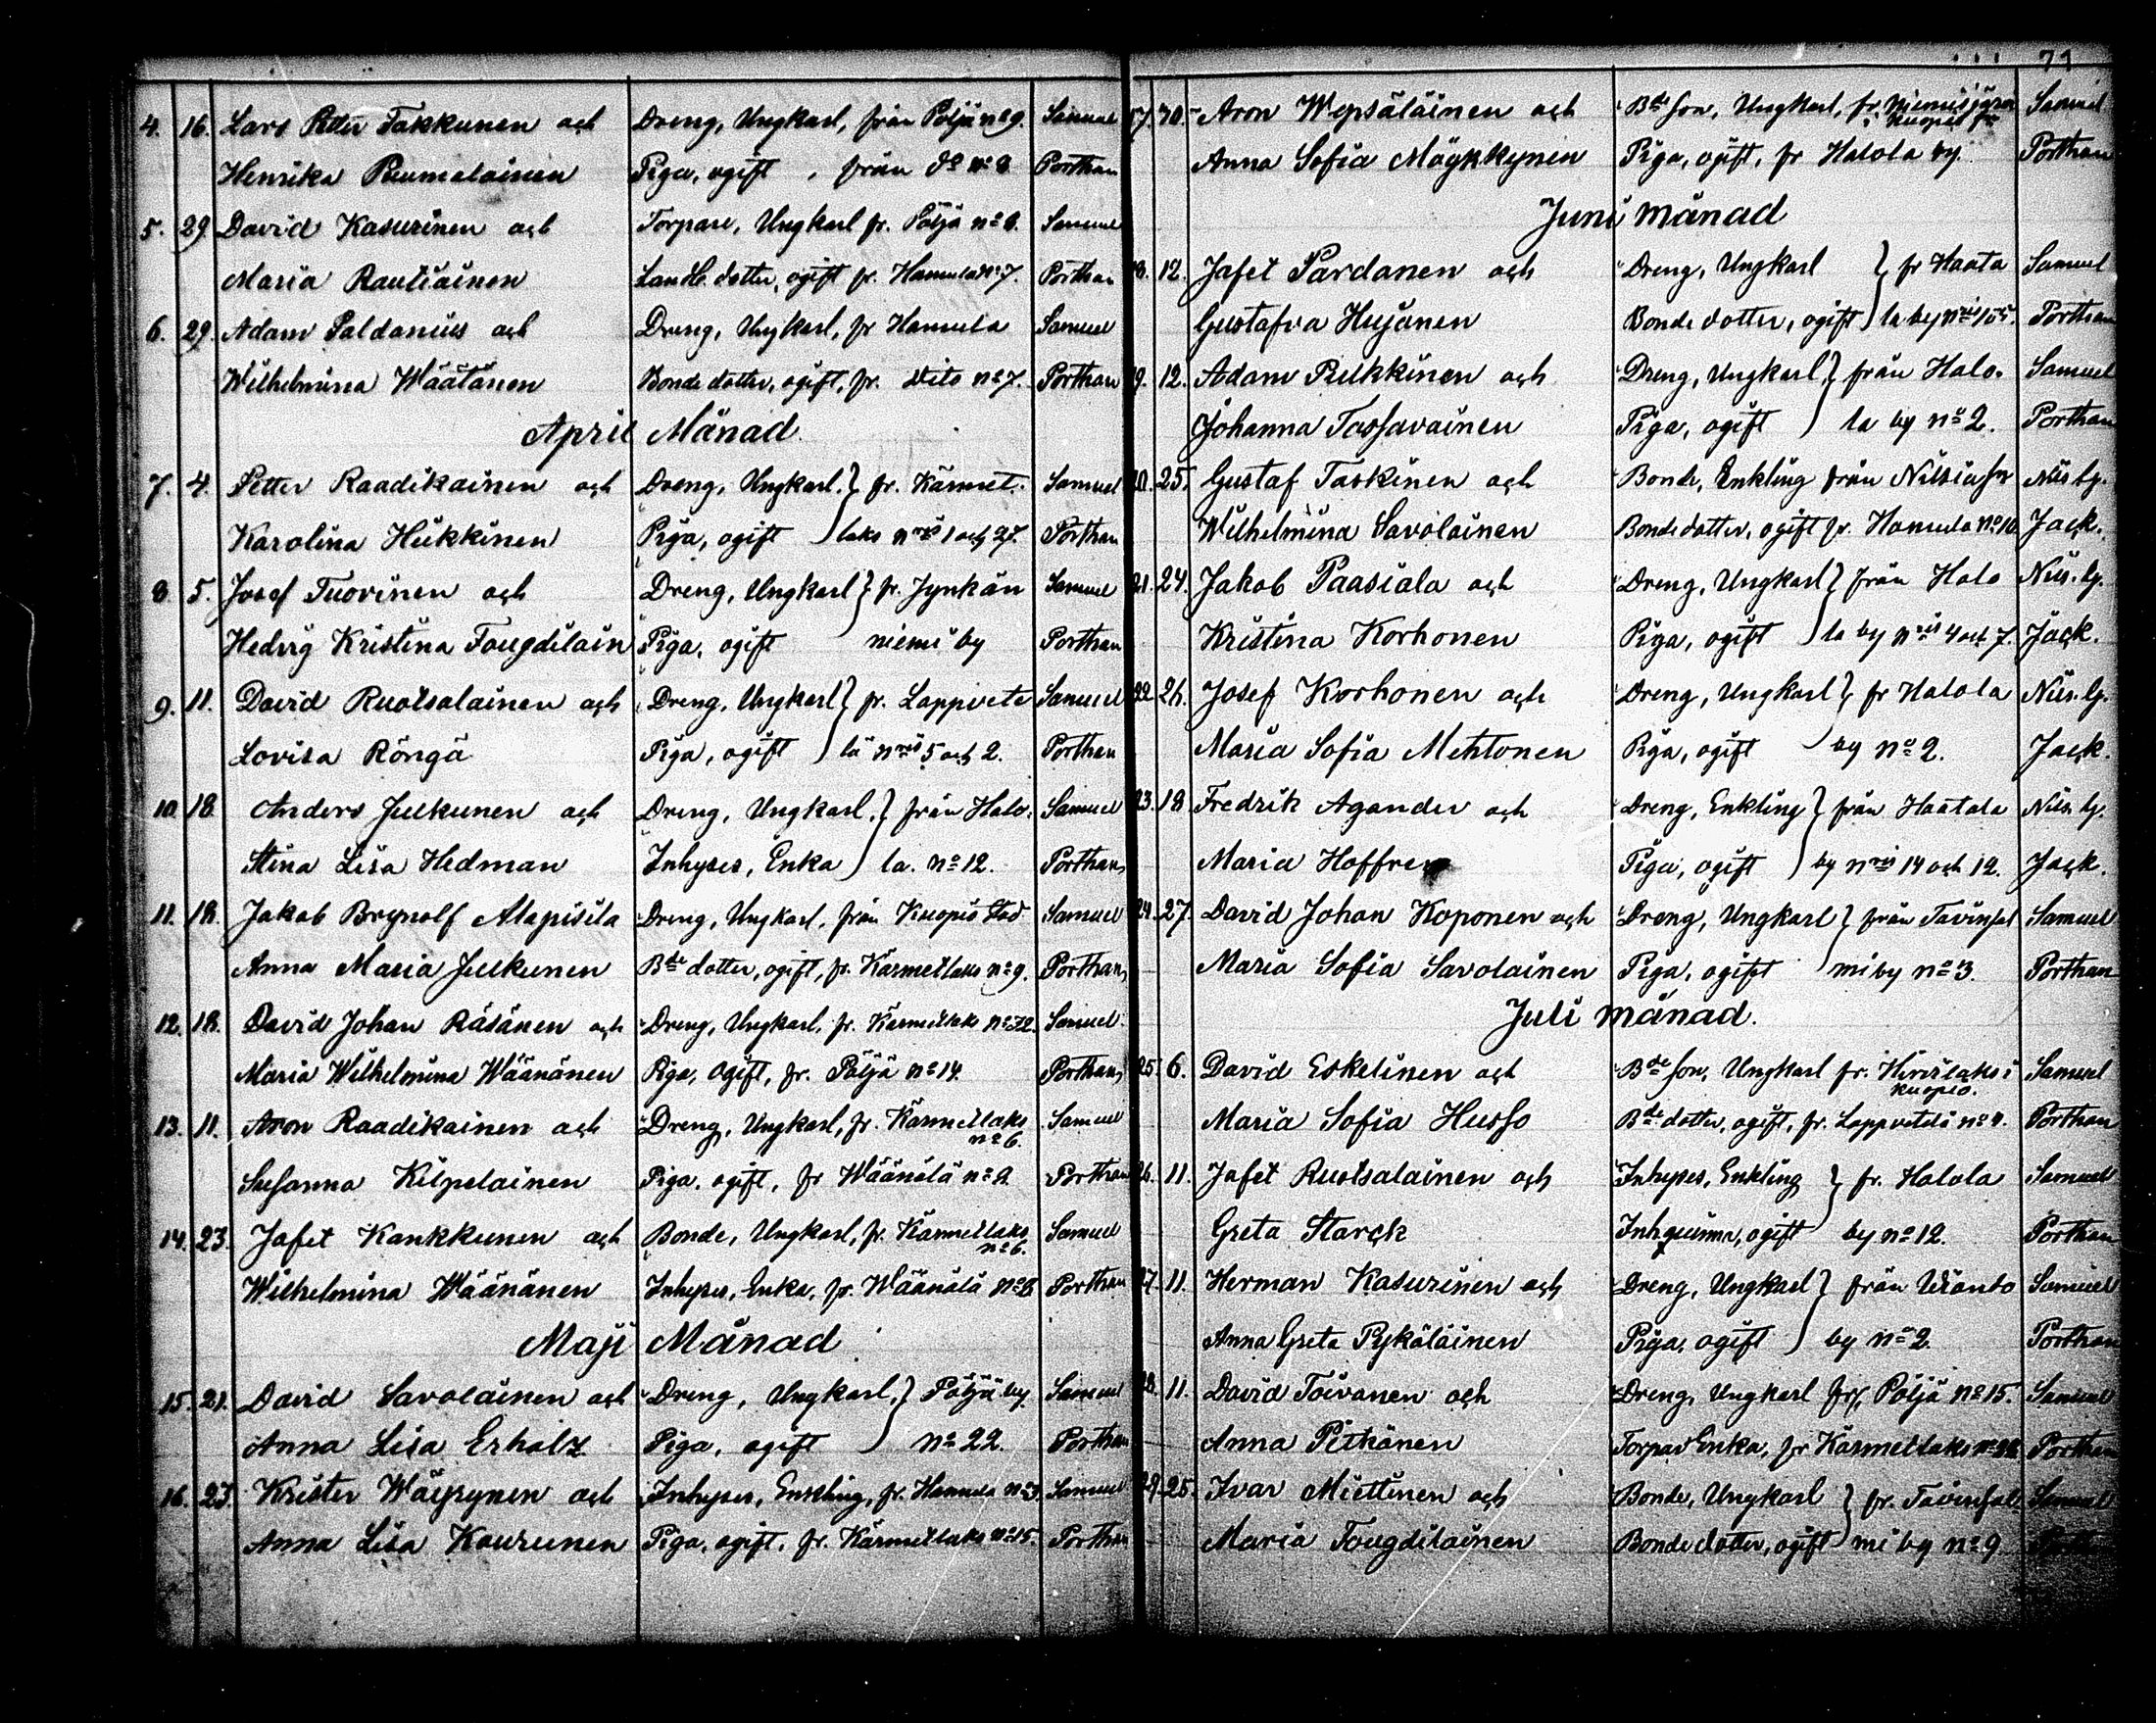 71
4. 16. Lars Petter Takkunen och Dreng, Ungkarl, från Pöljä no 9. Samuel
Henrika Puumalainen Piga, ogift, från do no 9 Porthan
5. 29. David Kasurinen och Torpare, Ungkarl fr. Pöljä no 8. Samuel
Maria Rautiainen Landb. dotter, ogift fr. Hamula no 7. Porthan
6. 29. Adam Paldanius och Dreng, Ungkarl, fr Hamula Samuel
Wilhelmina Wäätänen Bonde dotter, ogift, fr. dito no 7. Porthan
April Månad.
7. 4. Petter Raadikainen och Dreng, Ungkarl. } fr. Kärmet. Samuel
Karolina Hukkinen Piga, ogift } laks nris 1 och 27. Porthan
8. 5. Josef Tuovinen och Dreng, Ungkarl } fr. Jynkän Samuel
Hedvig Kristina Tougdilain Piga, ogift niemi by Porthan
9. 11. David Ruotsalainen och Dreng, Ungkarl } fr. Lappvete Samuel
Lovisa Röngä Piga, ogift } lä nris 5 och 2. Porthan
10. 18. Anders Julkunen och Dreng, Ungkarl. } från Halo- Samuel
Stina Lisa Hedman Inhyses, Enka } la. no 12. Porthan
11. 18. Jakob Brynolf Alapisila Dreng, Ungkarl, från Kuopio Stad Samuel
Anna Maria Julkunen Bde dotter, ogift, fr. Kärmetlaks no 9. Porthan
12. 18. David Johan Räsänen och Dreng, Ungkarl, fr. Kärmetlaks no 32. Samuel
Maria Wilhelmina Wäänänen Piga, ogift, fr. Pöljä no 14. Porthan
13. 11. Aron Raadikainen och Dreng, Ungkarl, fr. Kärmetlaks no 6. Samuel
Susanna Kilpelainen Piga, ogift, fr Wäänälä no 2 Porthan
14. 23. Jafet Kankkunen och Bonde, Ungkarl, fr. Kärmetlaks no 6. Samuel
Wilhelmina Wäänänen Inhyses, Enka, fr. Wäänälä no 8 Porthan
Maji Månad
15. 21. David Savolainen och Dreng, Ungkarl, } Pöljä by Samuel
Anna Lisa Erholz Piga, ogift } no 22. Porthan
16. 23. Krister Wäyrynen och Inhyses, Enkling, fr. Hamula no 3. Samuel
Anna Lisa Kourunen Piga, ogift, fr. Kärmetlaks no 15. Porthan
17. 30. Aron Wepsäläinen och Bde son, Ungkarl, fr. Niemisjärvi i Kuopio sn Samuel
Anna Sofia Möykkynen Piga, ogift, fr Halola by. Porthan
Juni månad
18. 12. Jafet Pardanen och Dreng, Ungkarl } fr Haata Samuel
Gustafva Hujanen Bonde dotter, ogift } la by Porthan
19. 12. Adam Pulkkinen och Dreng, Ungkarl } från Halo- Samuel
Johanna Tassavainen Piga, ogift } la by no 2. Porthan
20. 25. Gustaf Taskinen och Bonde, Enkling från Nilsiä sn Niis bg.
Wilhelmina Savolainen Bonde dotter, ogift fr. Hamula no 10 Jack.
21. 24. Jakob Paasiala och Dreng, Ungkarl } från Halo Niis. bg.
Kristina Korhonen Piga, ogift } la by nris 4 och 7. Jack.
22. 26. Josef Korhonen och Dreng, Ungkarl } fr Halola Niis. bg.
Maria Sofia Mehtonen Piga, ogift } by no 2. Jack.
23. 18 Fredrik Agander och Dreng, Enkling } från Haatala Niis bg.
Maria Hoffren Piga, ogift } by nris 14 och 12. Jack.
24. 27. David Johan Koponen och Dreng, Ungkarl } från Tavinsal Samuel
Maria Sofia Savolainen Piga, ogift } mi by no 3. Porthan
Juli månad.
25. 6. David Eskelinen och Bde son, Ungkarl fr. Hirvilaks i Kuopio. Samuel
Maria Sofia Husso Bde dotter, ogift, fr. Lappvetelä no 4. Porthan
26. 11. Jafet Ruotsalainen och Inhyses, Enkling } fr. Halola Samuel
Greta Starck Inh. qvinna, ogift by no 12. Porthan
27. 11. Herman Kasurinen och Dreng, Ungkarl } från Wianto Samuel
Anna Greta Pykäläinen Piga, ogift } by no 2. Porthan
28. 11. David Toivanen och Dreng, Ungkarl fr. Pöljä no 15. Samuel
Anna Pitkänen Torpar Enka, fr Kärmetlaks Porthan
29. 25. Ivar Miettinen och Bonde, Ungkarl } fr. Tavinsal Samuel
Maria Tougdilainen Bonde dotter, ogift } mi by no 9